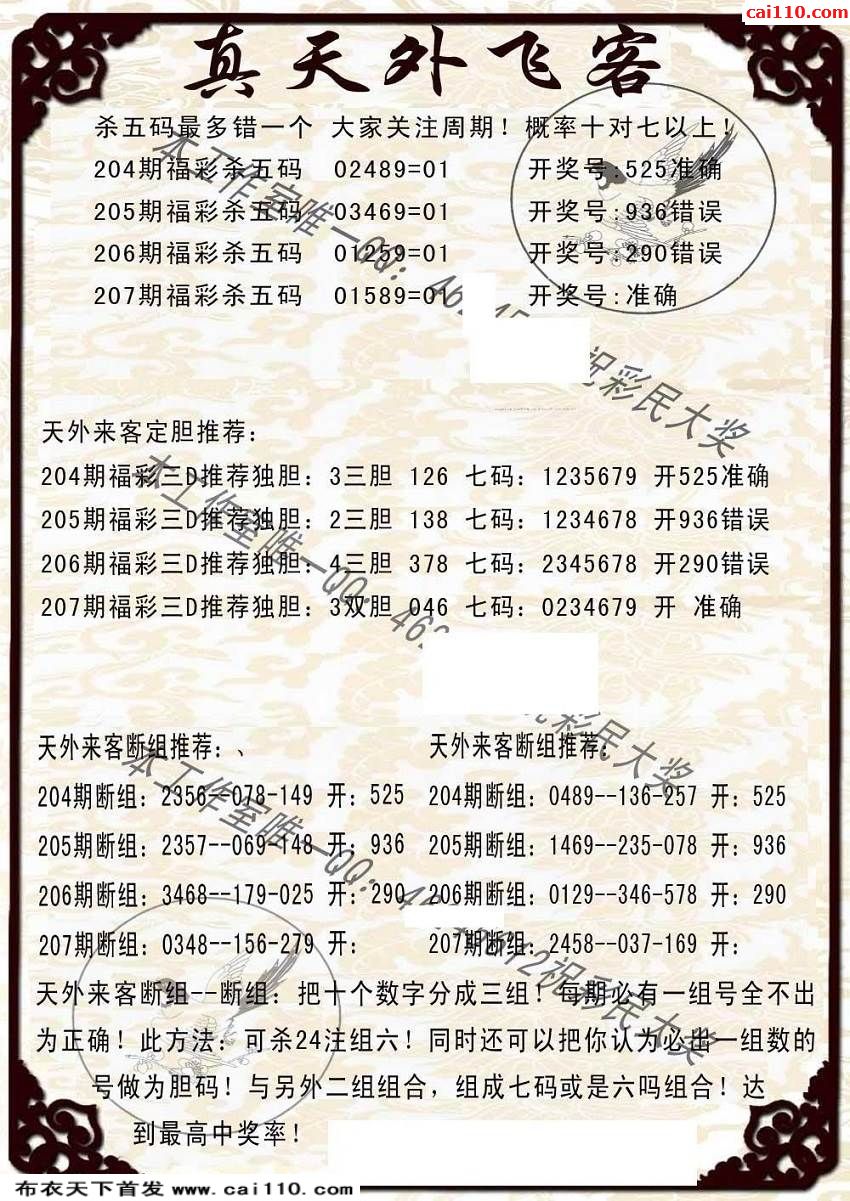 cai110.com
真天外飞客
杀五码最多错一个 大家关注周期！概率十对七以上！
204期福彩杀五码 02489=01 开奖号:525准确
205期福彩杀五码 03469=01 开奖号:936错误
206期福彩杀五码 01259=01 开奖号:290错误
207期福彩杀五码 01589=01 开奖号:准确
本工作室唯一QQ：46 祝彩民大奖
天外来客定胆推荐：
204期福彩三D推荐独胆：3三胆 126 七码：1235679 开525准确
205期福彩三D推荐独胆：2三胆 138 七码：1234678 开936错误
206期福彩三D推荐独胆：4三胆 378 七码：2345678 开290错误
207期福彩三D推荐独胆：3双胆 046 七码：0234679 开 准确
本工作室唯一QQ：46 祝彩民大奖
天外来客断组推荐：、 天外来客断组推荐：
204期断组：2356--078-149 开：525 204期断组：0489--136-257 开：525
205期断组：2357--069-148 开：936 205期断组：1469--235-078 开：936
206期断组：3468--179-025 开：290 206期断组：0129--346-578 开：290
207期断组：0348--156-279 开： 207期断组：2458--037-169 开：
本工作室唯一QQ：4 祝彩民大奖
天外来客断组--断组：把十个数字分成三组！每期必有一组号全不出
为正确！此方法：可杀24注组六！同时还可以把你认为必出一组数的
号做为胆码！与另外二组组合，组成七码或是六吗组合！达
到最高中奖率！
布衣天下首发 www.cai110.com